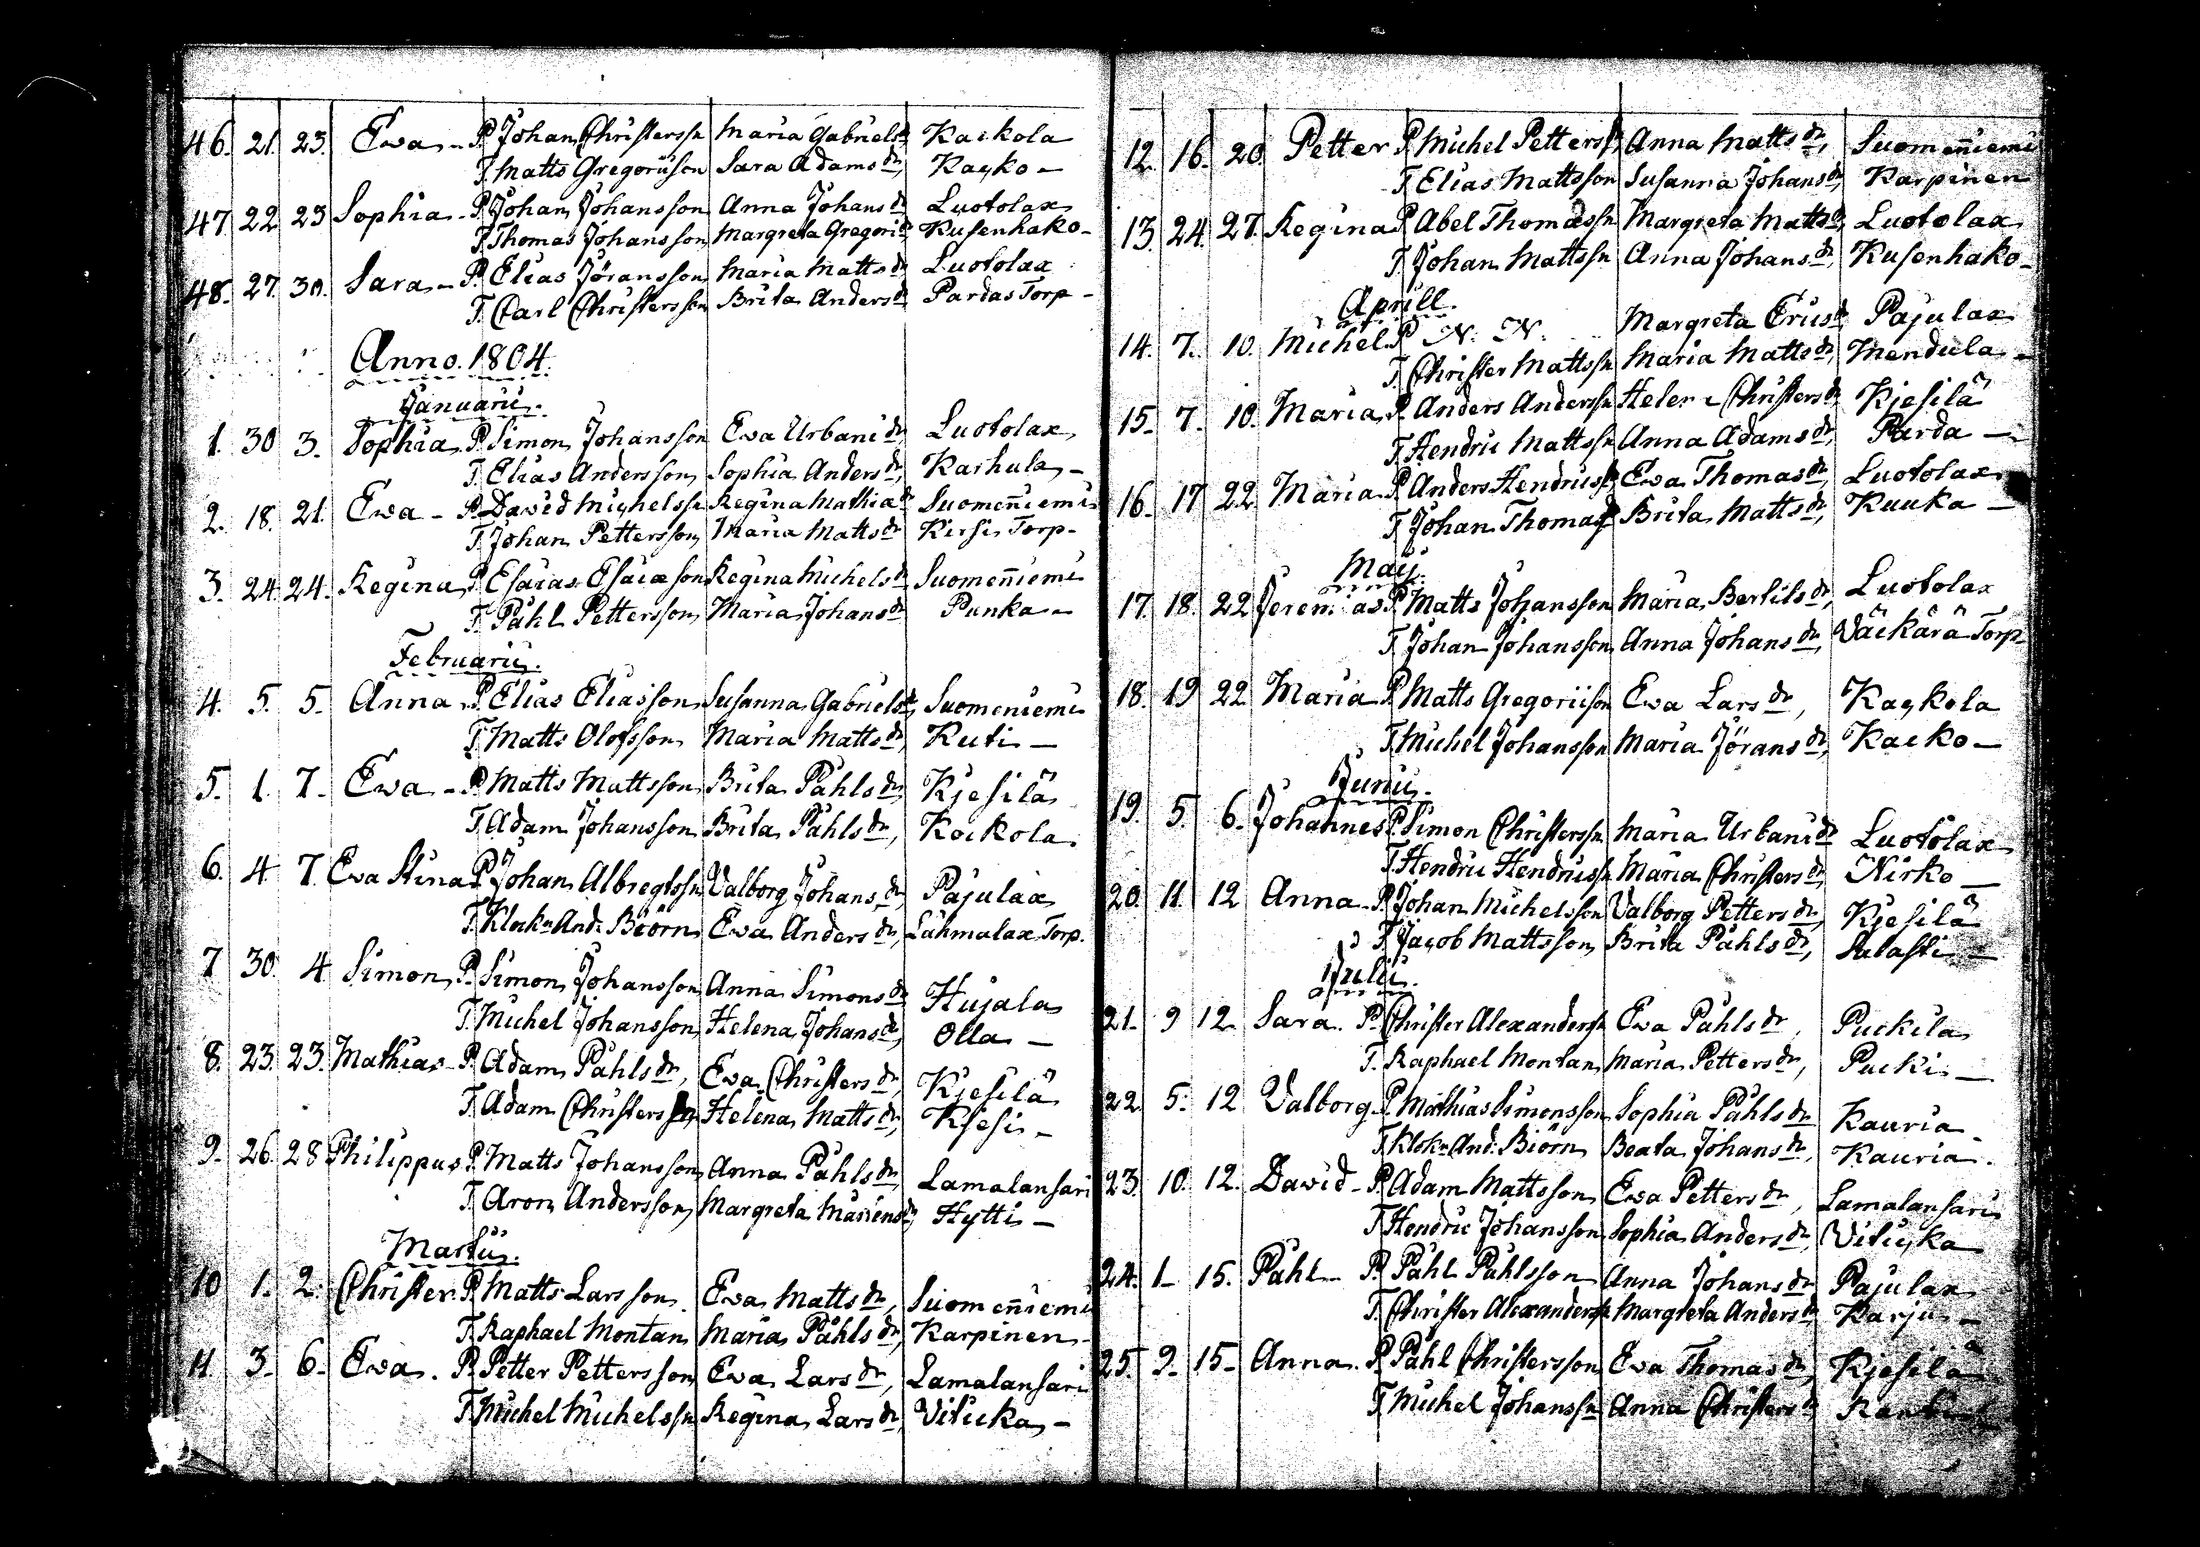 46. 21. 23. Ewa - P. Johan Christerssn Maria Gabrielsdr Kaikola
T. Matts Gregoriison Sara Adamsdr, Kaƨko -
47 22 23 Sophia - P. Johan Johansson Anna Johansdr Luotolax
T. Thomas Johansson Margreta Gregoridr Kusenhako -
48. 27. 30. Sara - P. Elias Jöransson Maria Mattsdr Luotolax
T. Carl Christersson Brita Andersdr Pardas Torp -
Anno. 1804.
Januarii.
1. 30 3. Sophia P. Simon Johansson Ewa Urbanidr Luotolax
T. Elias Andersson Sophia Andersdr, Karhula -
2. 18. 21. Ewa - P. David Michelssn Regina Mathiadr Suomeñiemi
T. Johan Pettersson Maria Mattsdr Kirsis Torp -
3. 24 24. Regina P. Esaias Esaiæson Regina Michelsdr Suomeñiemi
T. Påhl Pettersson Maria Johansdr Punka -
Februarii.
4. 5. 5. Anna P. Elias Eliasson Susanna Gabrielsdr, Suomeniemi
T. Matts Olofsson Maria Mattsdr, Kuti -
5. 1. 7. Ewa - P. Matts Mattsson Brita Påhlsdr, Kjesilä
T. Adam Johansson Brita Påhlsdr, Kockola
6. 4 7. Eva Stina P. Johan Albregtssn Valborg Johansdr, Pajulax
T. Klockn And: Biörn Ewa Andersdr, Lähmalax Torp.
7 30. 4 Simon P. Simon Johansson Anna Simonsdr Hujala
T. Michel Johansson Helena Johansdr, Olla -
8. 23. 23. Mathias - P. Adam Påhlsdr, Ewa Christersdr, Kjesilä
T. Adam Christerssn Helena Mattsdr, Kjesi -
9. 26. 28 Philippus P. Matts Johansson Anna Påhlsdr, Lamalansari
T. Aron Andersson Margreta Mårtensdr Hytti -
Martii.
10 1. 2. Christer P. Matts Larsson Ewa Mattsdr, Suomeñiemi
T. Raphael Montan Maria Påhlsdr, Karpinen -
11. 3. 6. Ewa. P. Petter Pettersson Ewa Larsdr, Lamalansari
T. Michel Michelssn Regina Larsdr, Viticka -
12. 16. 20 Petter P. Michel Petterssn Anna Mattsdr, Suomeñiemi
T. Elias Mattsson Susanna Johansdr Karpinen
13. 24. 27. Regina P. Abel Thomassn Margreta Mattsdr, Luotolax
T. Johan Mattssn Anna Johansdr, Kusenhako -
Aprill.
14. 7. 10. Michel P. N. N. Margreta Ericsdr Pajulax
T. Christer Mattssn Maria Mattsdr, Mendula -
15. 7. 10. Maria P. Anders Anderssn Helena Christersdr, Kjesilä
T. Hendric Mattssn Anna Adamsdr, Parda -
16. 17 22 Maria P. Anders Hendricssn Ewa Thomasdr, Luotolax
T. Johan Thomass Brita Mattsdr, Kuuka -
Maij.
17. 18. 22 Jeremias P. Matts Johansson Maria Bertilsdr, Luotolax
T. Johan Johansson Anna Johansdr, Väckärä Torp
18. 19 22 Maria P. Matts Gregoriison Ewa Larsdr, Kackola
T. Michel Johansson Maria Jöransdr, Kacko -
Junii.
19. 5. 6. Johannes P. Simon Christerssn Maria Urbanidr Luotolax
T. Hendric Hendricssn Maria Christersdr, Nirko -
20. 11. 12 Anna - P. Johan Michelsson Valborg Pettersdr, Kjesilä
T. Jacob Mattsson Brita Påhlsdr,
Julii.
21. 9 12. Sara. P. Christer Alexanderssn Ewa Påhlsdr, Puckila
T. Raphael Montan Maria Pettersdr, Pucki -
22. 5. 12 Valborg P. Mathias Simonsson Sophia Påhlsdr, Kauria -
T. Klokn And: Biörn Beata Johansdr, Kauria.
23. 10. 12. David - P. Adam Mattsson Ewa Pettersdr, Lamalansari
T. Hendric Johansson Sophia Andersdr, Viticka
24. 1 - 15. Påhl - P. Påhl Påhlsson Anna Johansdr Pajulax
T. Christer Alexanderssn Margreta Andersdr, Karju -
25. 9. 15 - Anna. P. Påhl Christersson Ewa Thomasdr, Kjesilä
T. Michel Johanssn Anna Christersdr